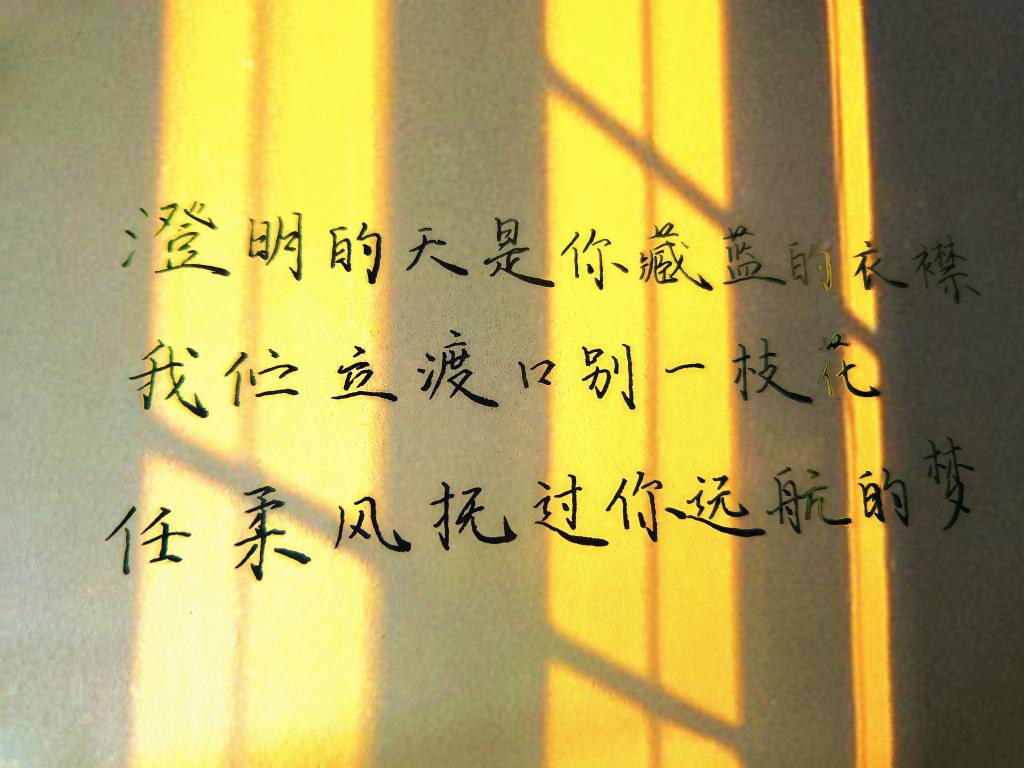 澄明的天是你藏蓝的衣襟
我伫立渡口别一枝花
任柔风抚过你远航的梦